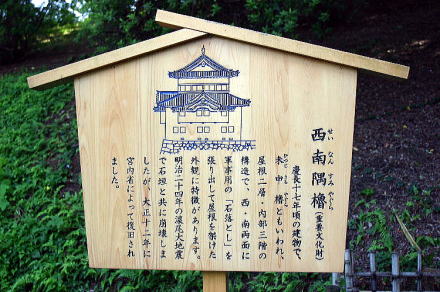 西南隅櫓（重要文化財）
せい なん すみ やぐら
慶長十七年頃の建物で、
未申櫓ともいわれ、
ひつじ さる やぐら
屋根二層・内部三階の
構造で、西・南両面に
軍事用の「石落とし」を
張り出して屋根を架けた
外観に特徴があります。
明治二十四年の濃尾大地震
で石垣と共に崩壊しま
したが、大正十二年に
宮内省によって復旧され
ました。